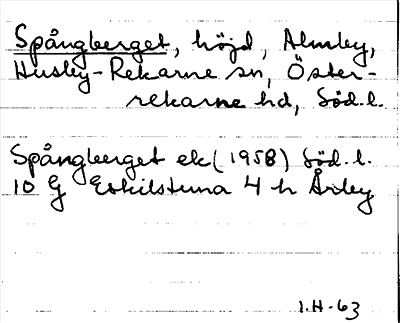 Spångberget, höjd, Almby,
Husby-Rekarne sn, Öster-
rekarne hd, Söd.l.
Spångberget ek (1958) Söd.l.
10 G Eskilstuna 4 h Årby
I.H-63